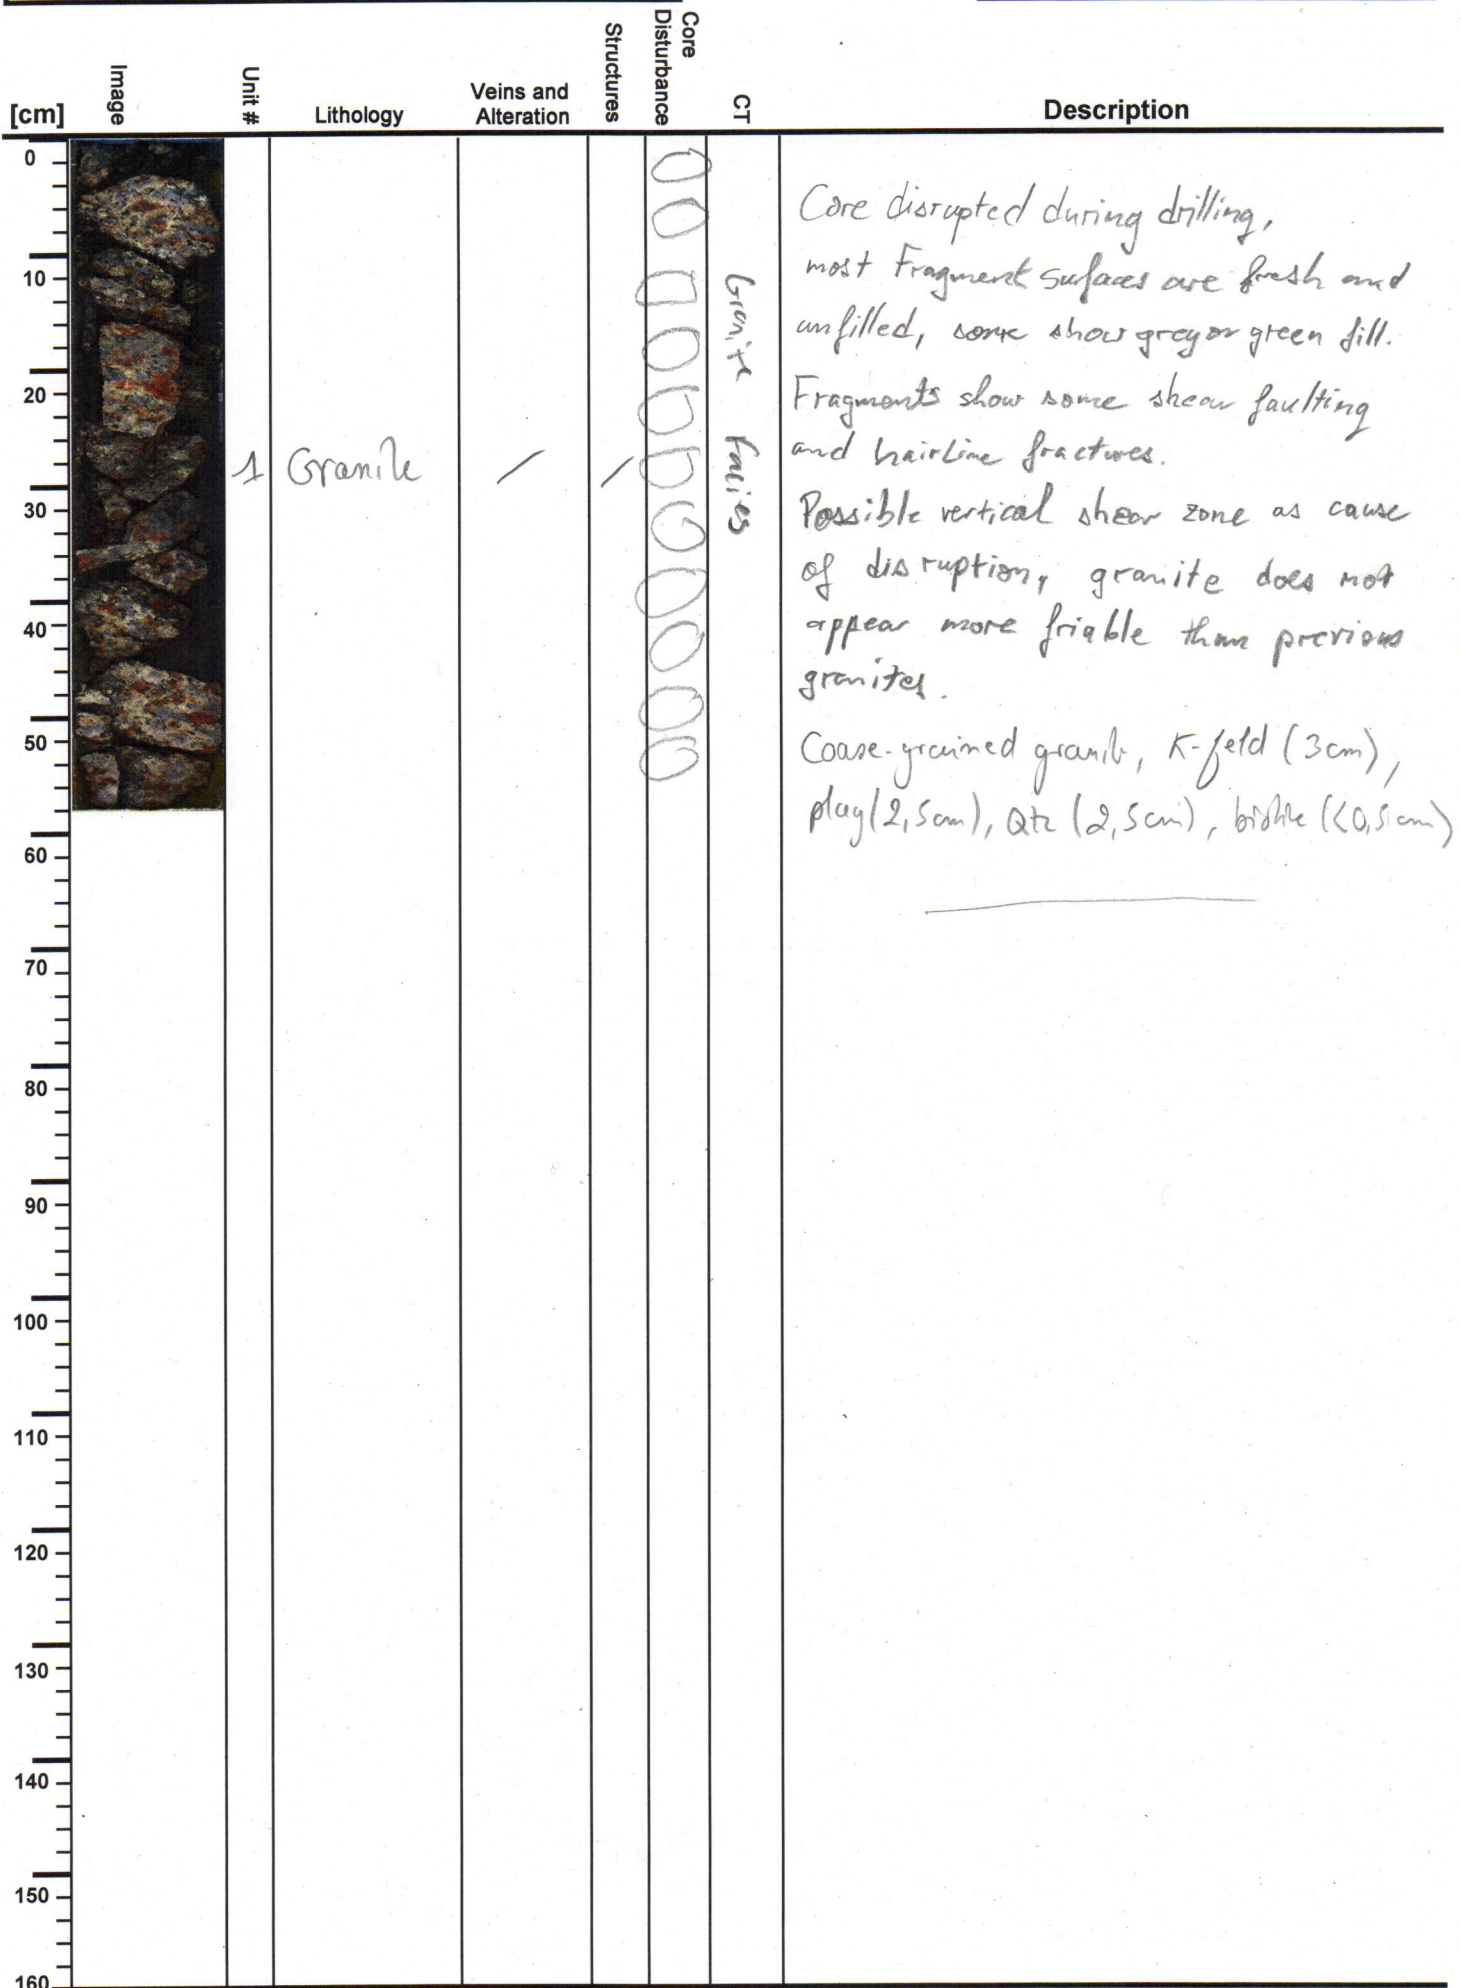 [cm]
Image
Unit #
Lithology
Veins and
Alteration
Structures
Core
Disturbance
CT
Description
0
10
20
30
40
50
60
70
80
90
100
110
120
130
140
150
160
1
Granite
/
/
Granite Facies
Core disrupted during drilling,
most Fragment surfaces are fresh and
unfilled, some show grey or green fill.
Fragments show some shear faulting
and hairline fractures.
Possible vertical shear zone as cause
of disruption, granite does not
appear more friable than previous
granites.
Coase-grained granite, K-feld (3cm),
plag (2,5cm), Qtz (2,5cm), biotite (<0,5cm)